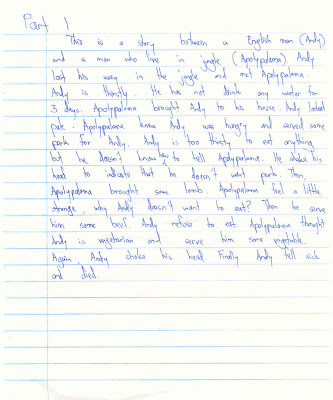 Part 1
This is a story between a English man (Andy)
and a man who live in jungle (Apolypalama). Andy
lost his way in the jungle and met Apolypalama.
Andy is thirstly. He has not drink any water for
3 days. Apolypalama brought Andy to his house. Andy looked
pale. Apolypalama knew Andy was hungry and served some
pork for Andy. Andy is too thirsty to eat anything
but he doesn't know how to tell Apolypalama. He shake his
head to indicate that he doesn't want pork. Then,
Apolypalama brought some lamb. Apolypalama feel a little
strange, why Andy doesn't want to eat? Then he serve
him some beef. Andy refuse to eat. Apolypalama thought
Andy is vegetarian and serve him some vegetable.
Again, Andy shake his head. Finally Andy fell sick
and died.